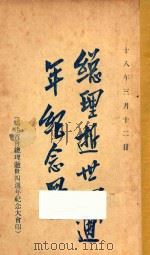 十八年三月十二日
總理逝世四週
年紀念冊
總理逝世四週年紀念大會印）
www.duxiu.com